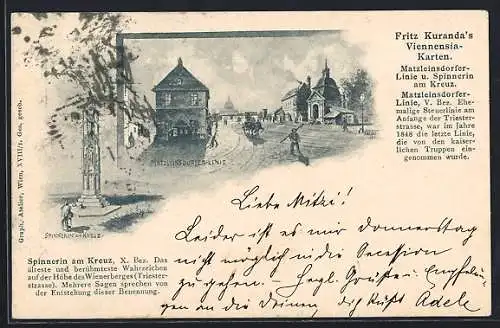 Fritz Kuranda's
Viennensia-
Karten.
Matzleinsdorfer-
Linie u. Spinnerin
am Kreuz.
Matzleinsdorfer-
Linie, V. Bez. Ehe-
malige Steuerlinie am
Anfange der Triester-
strasse, war im Jahre
1848 die letzte Linie,
die von den kaiser-
lichen Truppen ein-
genommen wurde.
MATZLEINSDORFER-LINIE
SPINNERIN AM KREUZ
Graph. Atelier, Wien, XVIII/1. Ges. gesch.
Spinnerin am Kreuz, X. Bez. Das
älteste und berühmteste Wahrzeichen
auf der Höhe des Wienerberges (Triester-
strasse). Mehrere Sagen sprechen von
der Entstehung dieser Benennung.
Liebe Mitzi!
Leider ist es mir Donnerstag
nicht möglich in die Secession
zu gehen. – Herzl. Grüße
an die Deinen, dich küßt Adele